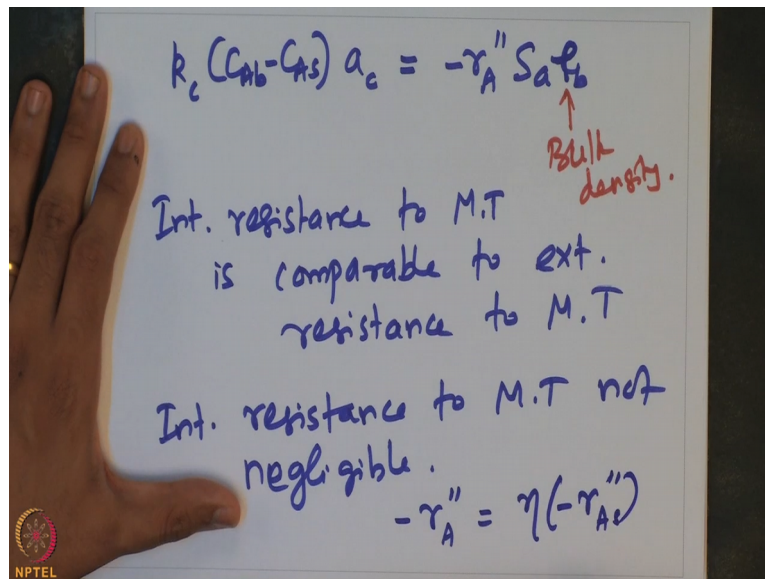 k_c (C_Ab - C_As) a_c = -r_A'' S_a ρ_b
Bulk
density.
Int. resistance to M.T
is comparable to ext.
resistance to M.T
Int. resistance to M.T not
negligible.
-r_A'' = η(-r_As'')
NPTEL